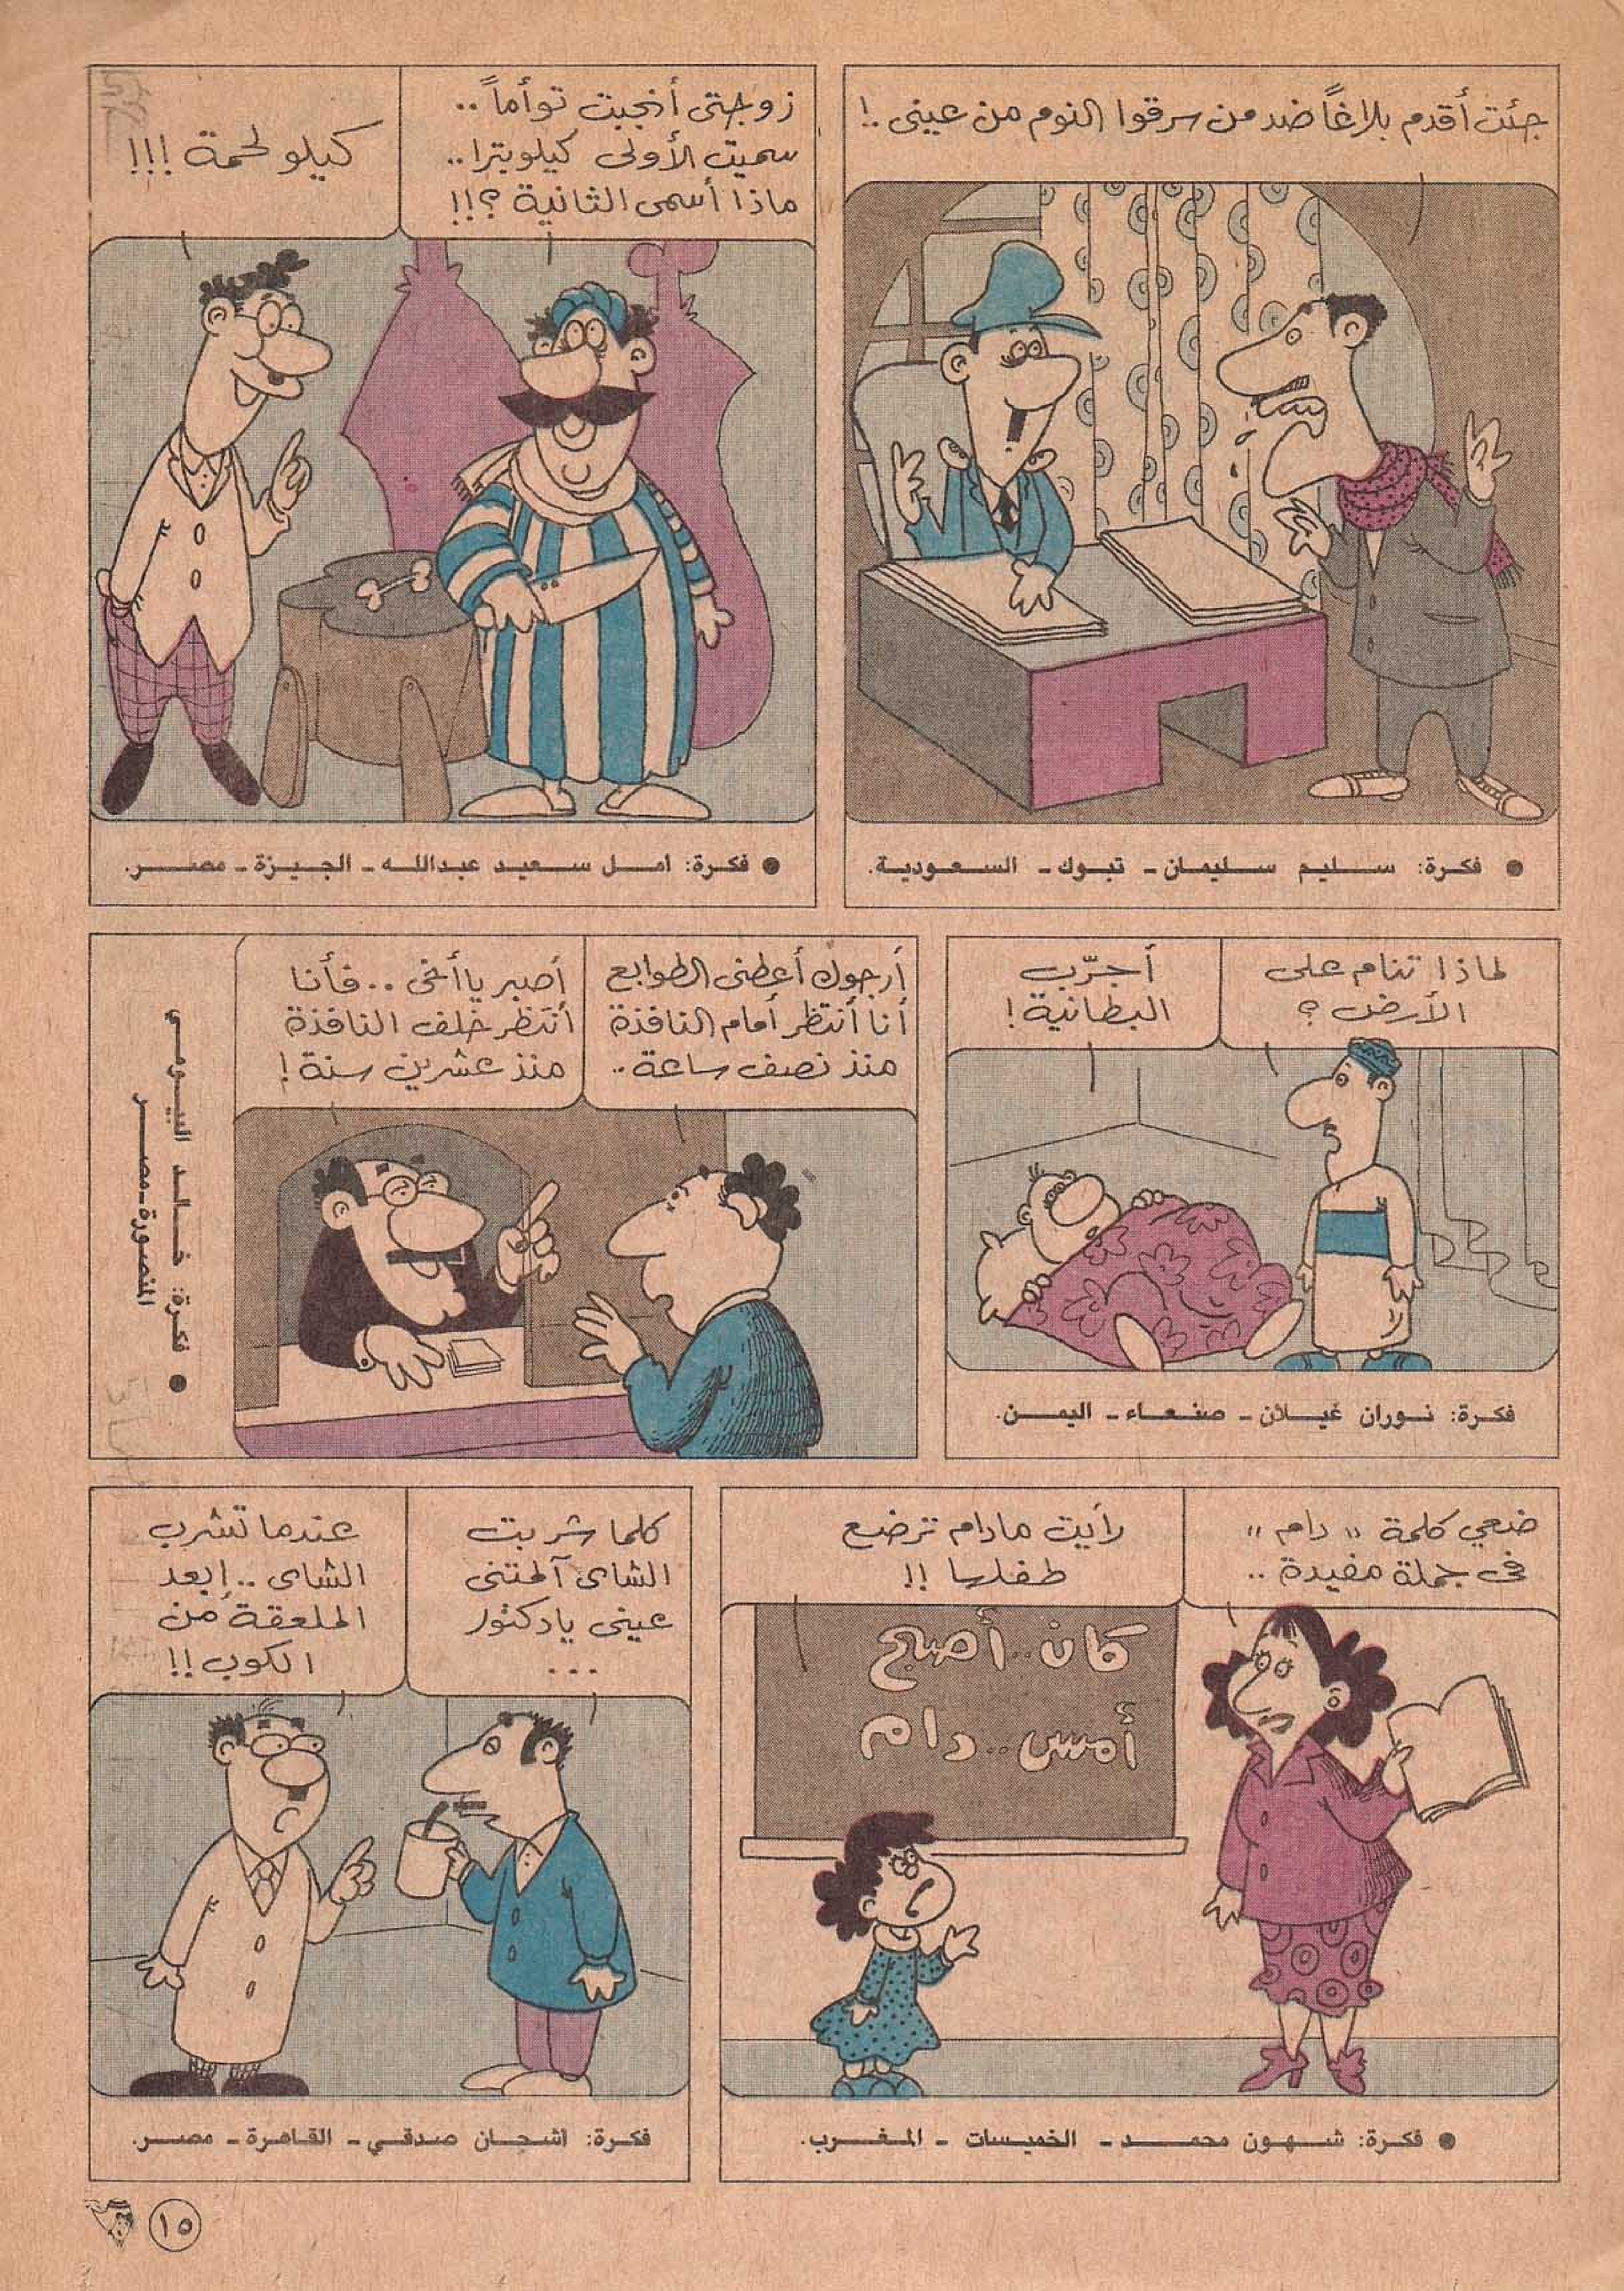 جئت أقدم بلاغاً ضد من سرقوا النوم من عينى .!
● فكرة: سليم سليمان - تبوك - السعودية.
زوجتى أنجبت توأماً ..
سميت الأولى كيلوبترا ..
ماذا أسمى الثانية ؟!!
كيلو لحمة !!!
● فكرة: امل سعيد عبدالله - الجيزة - مصر.
لماذا تنام على
الأرض ؟
أجرّب
البطانية !
فكرة: نوران غيلان - صنعاء - اليمن.
أرجوك أعطنى الطوابع
أنا أنتظر أمام النافذة
منذ نصف ساعة ..
أصبر يا أخى .. فأنا
أنتظر خلف النافذة
منذ عشرين سنة !
● فكرة: خالد البيومي
المنصورة - مصر
ضعي كلمة "دام"
فى جملة مفيدة ..
رأيت مادام ترضع
طفلها !!
كان .. أصبح
أمس .. دام
● فكرة: شهون محمد - الخميسات - المغرب.
كلما شربت
الشاى آلمتنى
عينى يادكتور
...
عندما تشرب
الشاى .. إبعد
الملعقة من
الكوب !!
فكرة: اشجان صدقي - القاهرة - مصر.
١٥